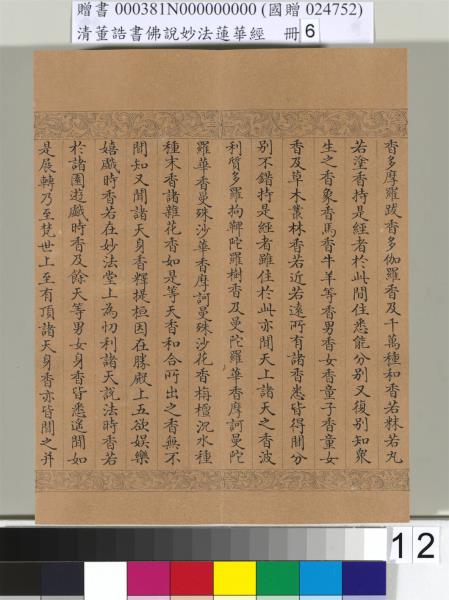 贈書 000381N000000000 (國贈 024752)
清董誥書佛說妙法蓮華經 冊 6
香多摩羅跋香多伽羅香及千萬種和香若秣若丸
若塗香持是經者於此間住悉能分別又復別知衆
生之香象香馬香牛羊等香男香女香童子香童女
香及草木叢林香若近若遠所有諸香悉皆得聞分
別不錯持是經者雖住於此亦聞天上諸天之香波
利質多羅拘鞞陀羅樹香及曼陀羅華香摩訶曼陀
羅華香曼殊沙華香摩訶曼殊沙花香栴檀沉水種
種末香諸雜花香如是等天香和合所出之香無不
聞知又聞諸天身香釋提桓因在勝殿上五欲娛樂
嬉戲時香若在妙法堂上為忉利諸天說法時香若
於諸園遊戲時香及餘天等男女身香皆悉遙聞如
是展轉乃至梵世上至有頂諸天身香亦皆聞之并
12